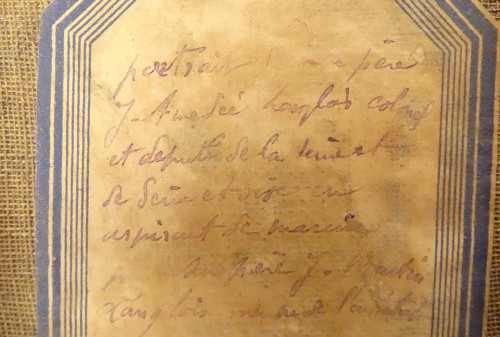 portrait père
J. Amédée Langlois colonel
et député de la Seine et
de Seine et Oise en
aspirant de marine
père J.
Langlois